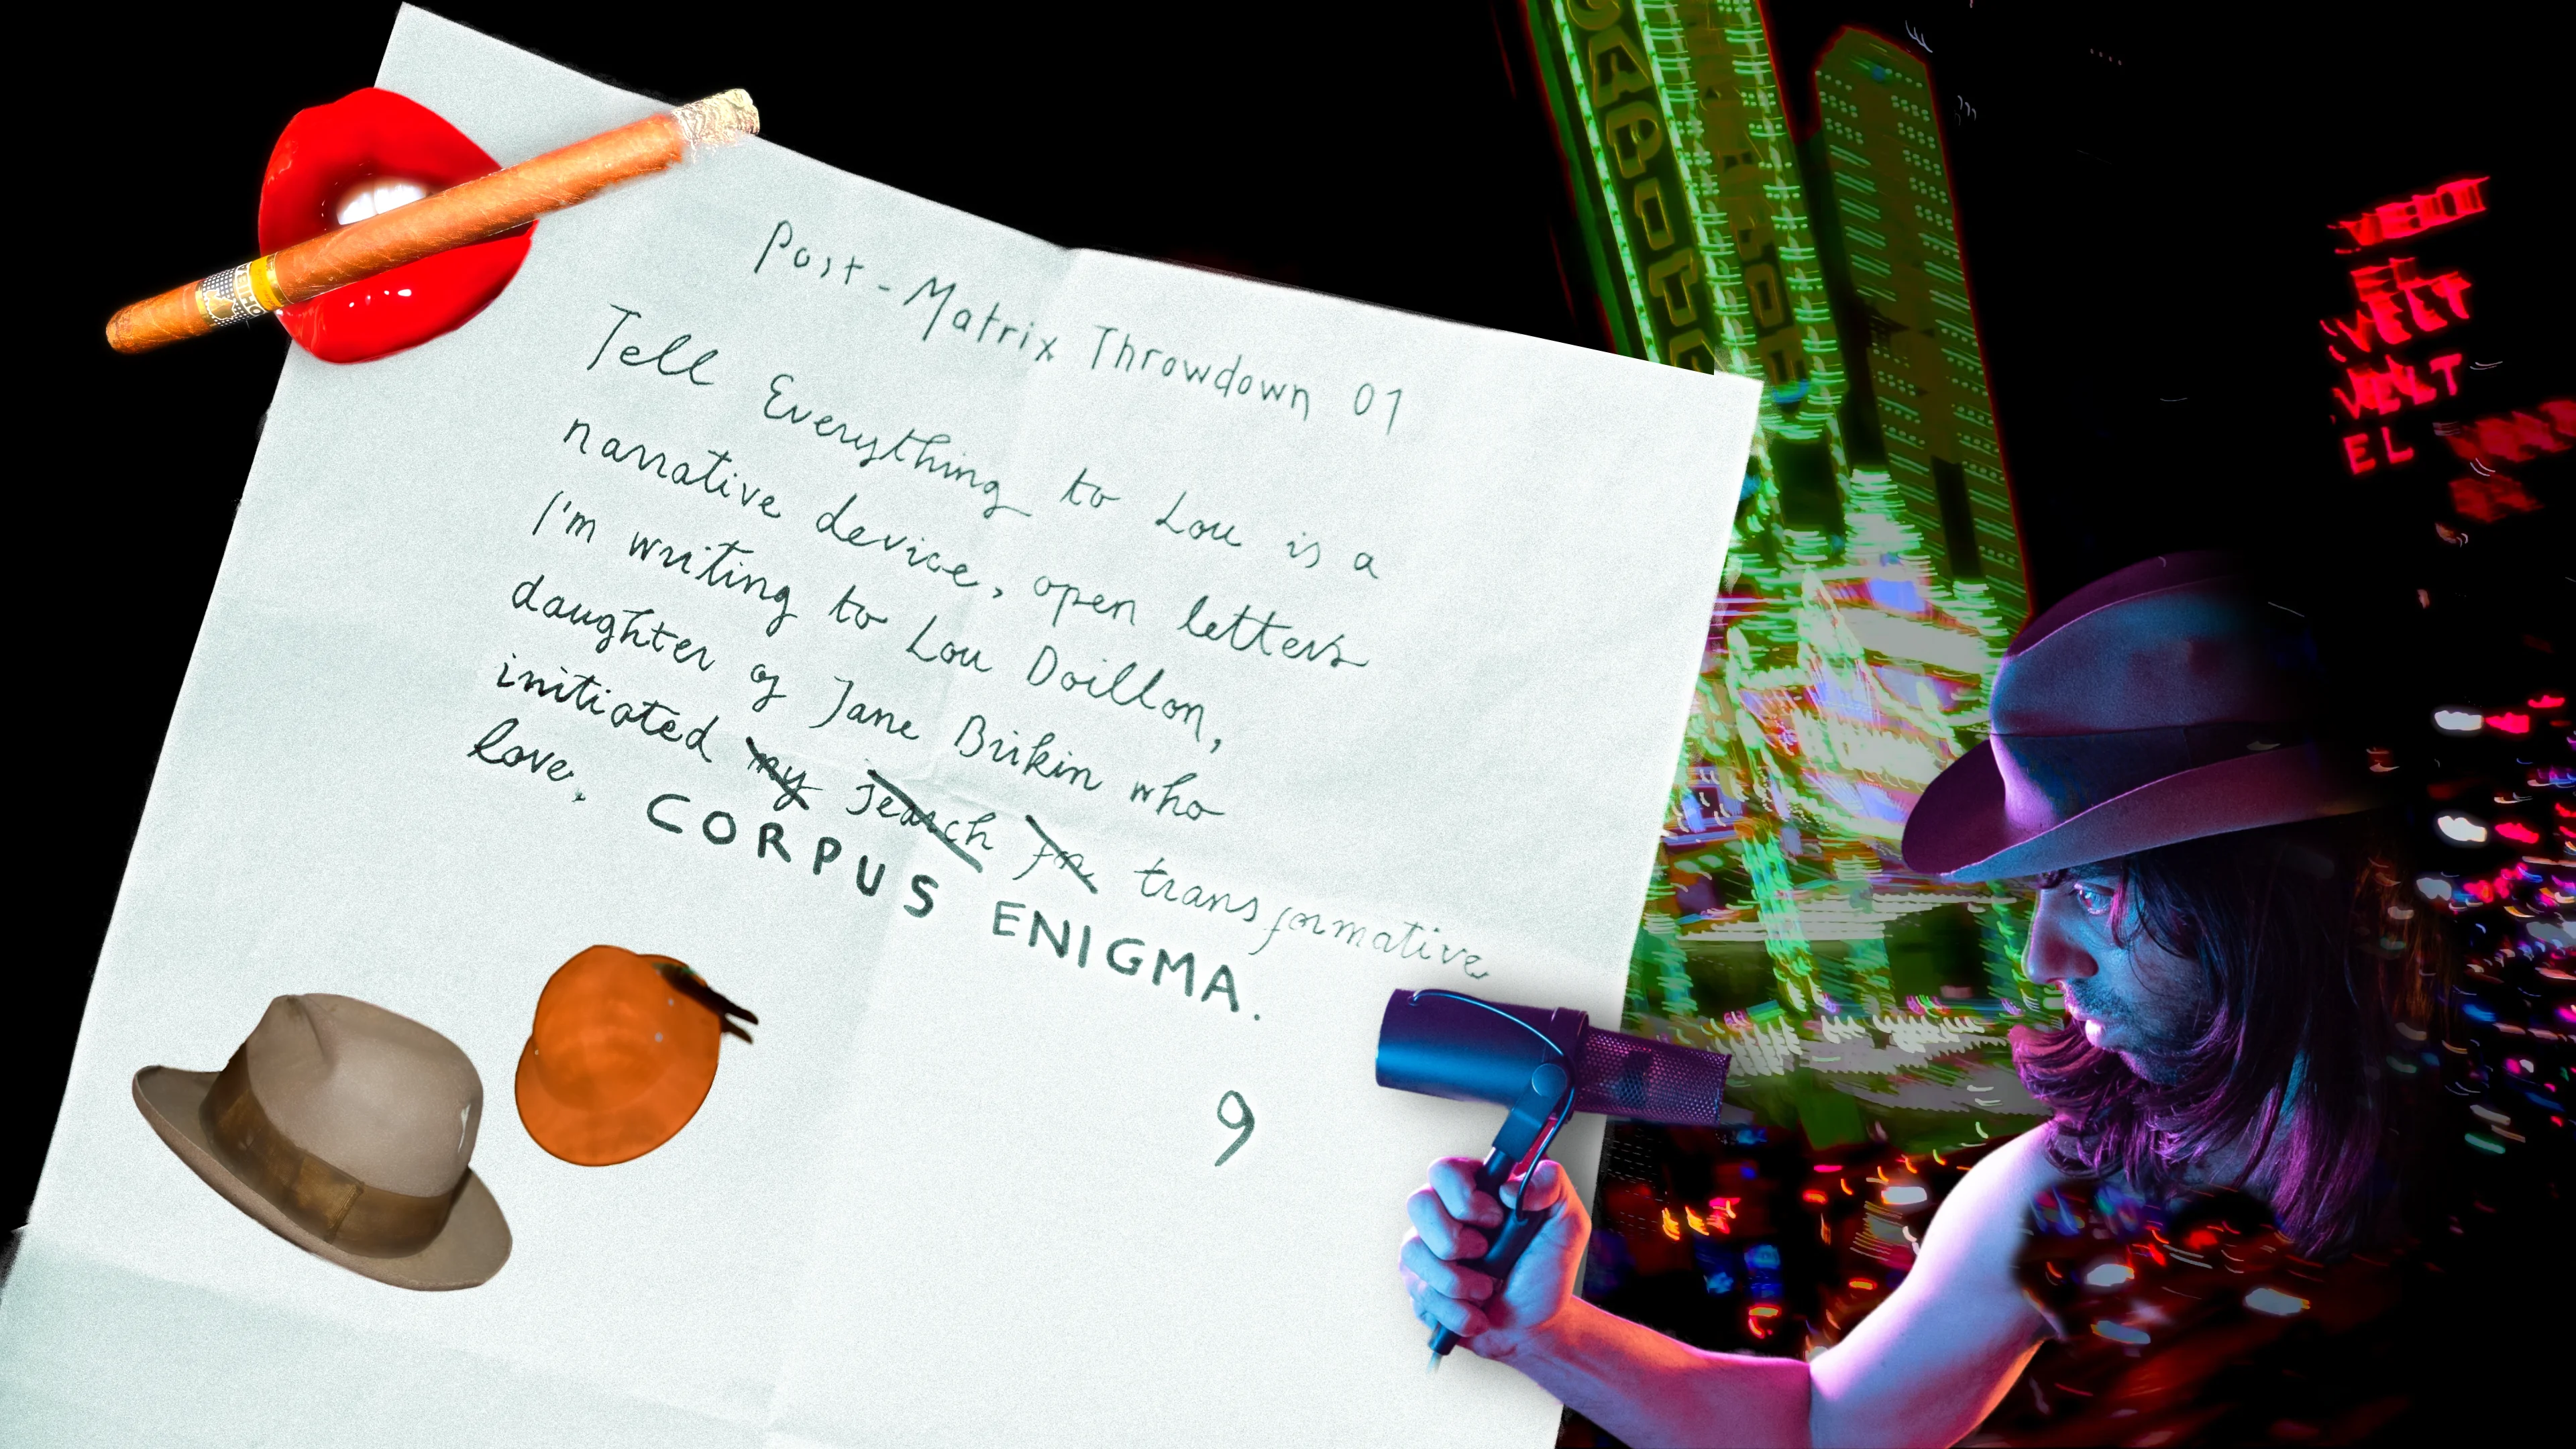 Post-Matrix Throwdown 01
Tell Everything to Lou is a
narrative device, open letters
I'm writing to Lou Doillon,
daughter of Jane Birkin who
initiated my search for transformative
love. CORPUS ENIGMA.
9
VELT
EL